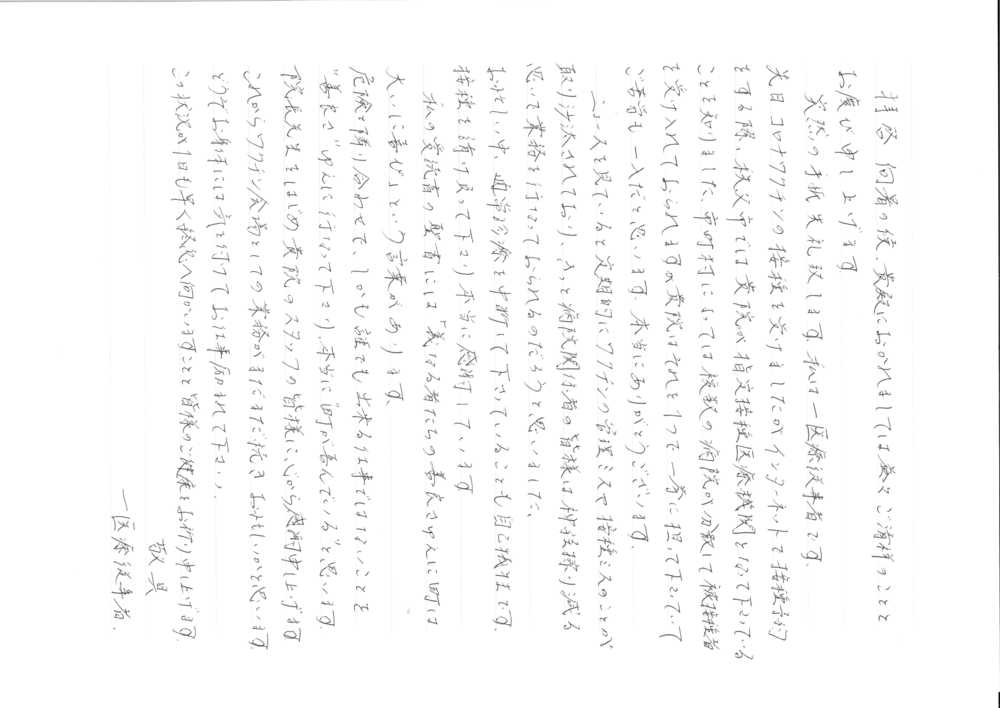 拝啓 向暑の候、貴殿におかれましては益々ご清祥のことと
お慶び申し上げます
突然の手紙失礼致します。私は一医療従事者です。
先日コロナワクチンの接種を受けましたがインターネットで接種予約
をする際、秩父市では貴院が指定接種医療機関となって下さっている
ことを知りました。市町村によっては複数の病院が分散して被接種者
を受け入れておられますが貴院はそれを1つで一斉に担って下さっていて
ご苦労も一入だと思います。本当にありがとうございます。
ニュースを見ていると定期的にワクチンの管理ミスや接種ミスのことが
取り沙汰されており、きっと病院関係者の皆様は神経擦り減る
思いで業務を行なっておられるのだろうと思いました。
お忙しい中、通常診療を中断して下さっていることも自己犠牲です。
接種を請け負って下さり本当に感謝しています
私の愛読書の聖書には「義なる者たちの善良さゆえに町は
大いに喜ぶ」という言葉があります。
危険と隣り合わせで、しかも誰でも出来る仕事ではないことを
"善良さ"ゆえに行なって下さり、本当に"町が喜んでいる"と思います。
院長先生をはじめ貴院のスタッフの皆様に心から感謝申し上げます
これからワクチン会場としての業務がまだまだ続き お忙しいかと思います
どうぞお身体には気を付けてお仕事励まれて下さい。
この状況が1日も早く終息へ向かいますことと皆様のご健康をお祈り申し上げます
敬具
一医療従事者.